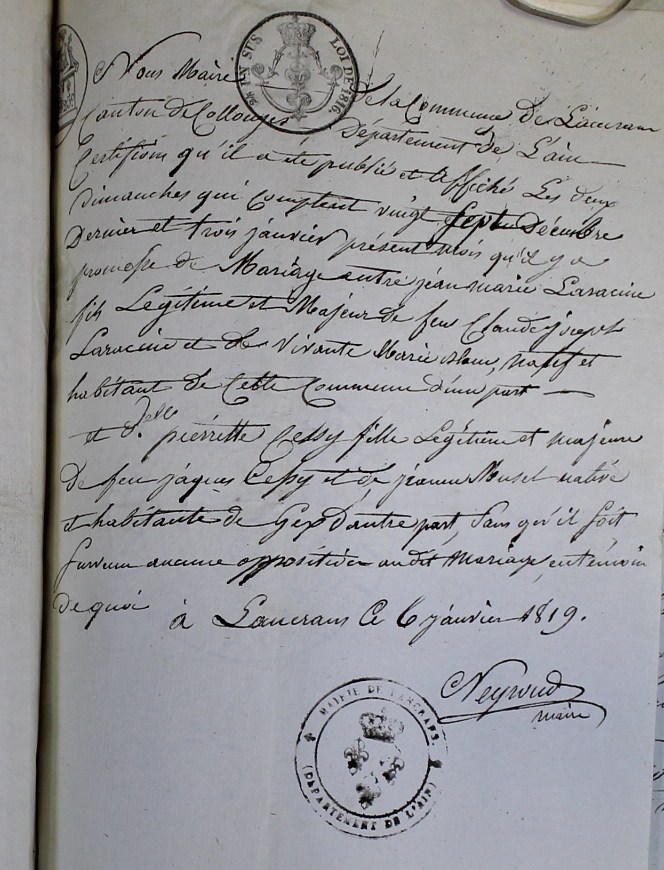 EN SUS
LOI DE 1816.
Nous Maire de la Commune de Lancrans
Canton de Collonges Département de L'ain
Certifions qu'il a été publié et affiché Les deux
dimanches qui comptent vingt sept Décembre
Dernier et trois janvier présent mois qu'il y a
promesse de Mariage entre jean marie Laracine
fils Légitime et Majeur de feu Claude joseph
Laracine et de vivante Marie natif et
habitant de Cette Commune d'une part
et d.elle pierrette fille Légitime et majeure
de feu jaques et de jeanne native
et habitante de Gex D'autre part, sans qu'il soit
survenu aucune opposition audit Mariage, en témoin
de quoi
à Lancrans Ce 6 janvier 1819.
Neyroud
maire
MAIRIE DE LANCRANS.
(DÉPARTEMENT DE L'AIN)